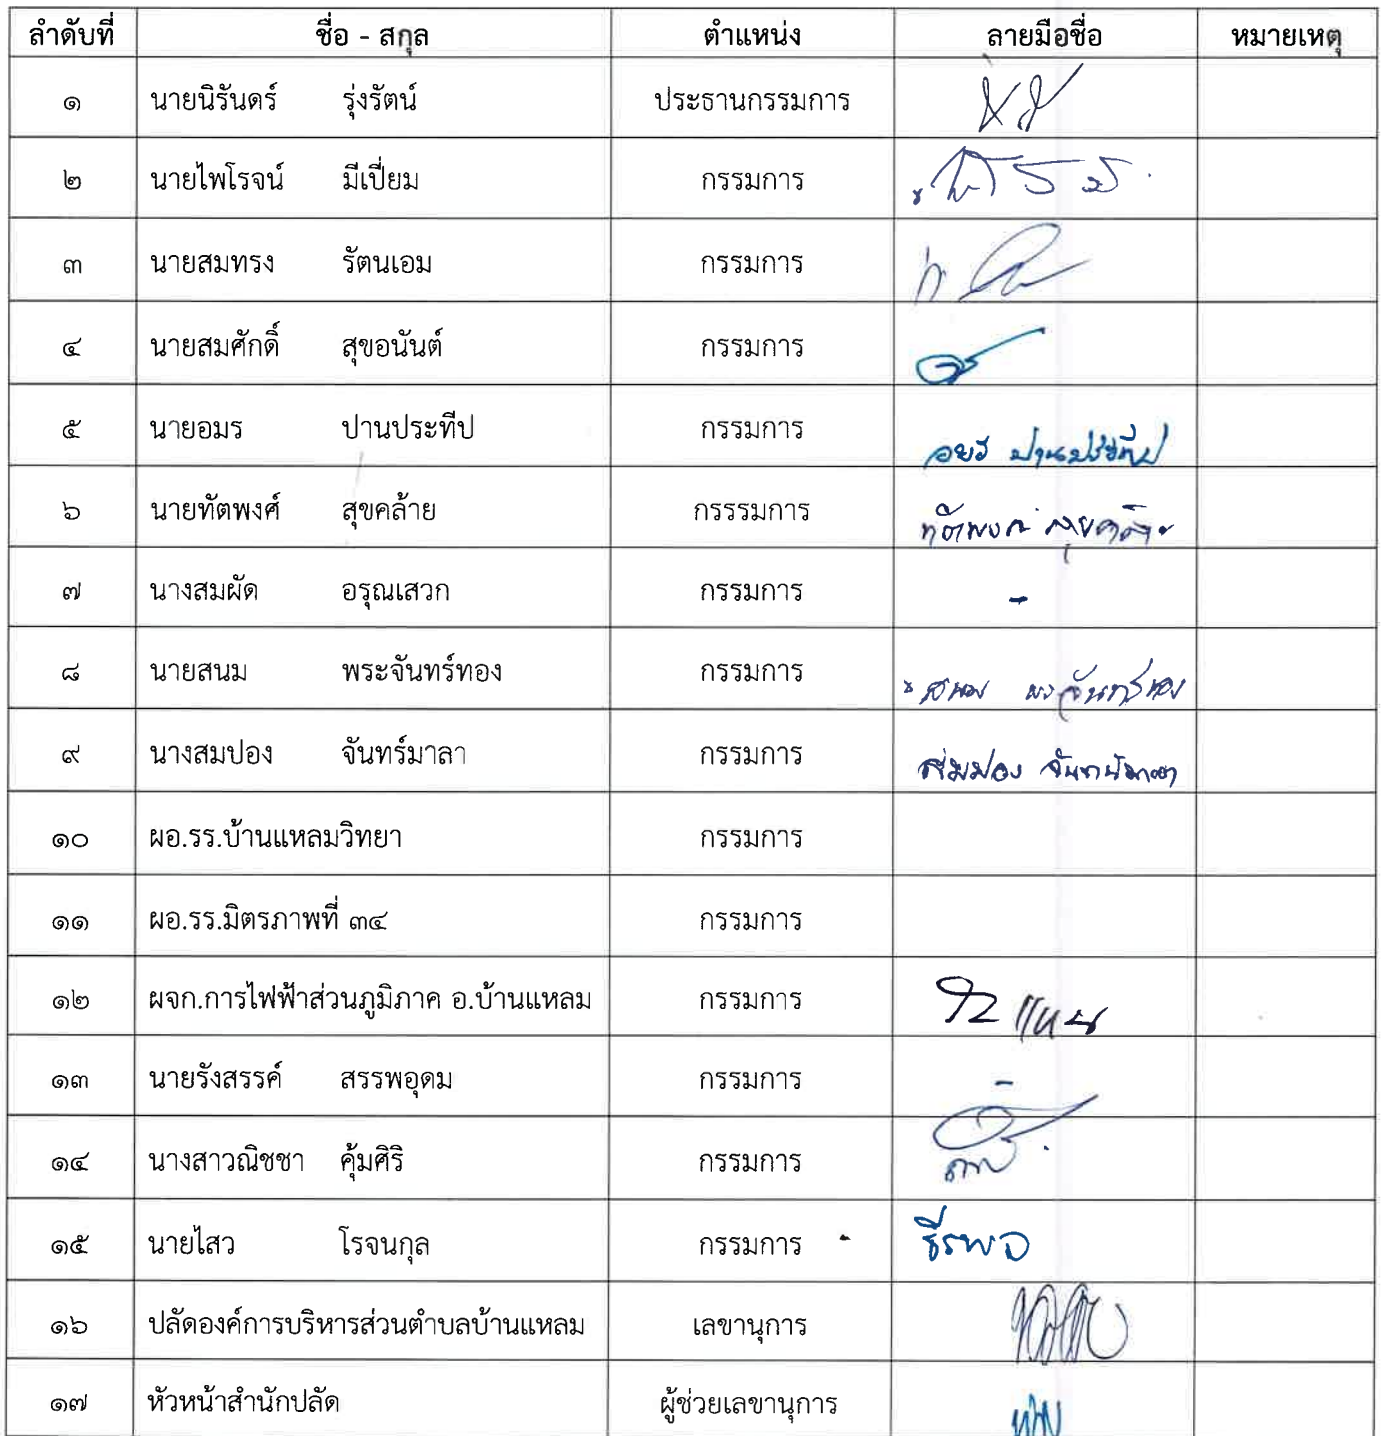 ลำดับที่ ชื่อ - สกุล ตำแหน่ง ลายมือชื่อ หมายเหตุ
๑ นายนิรันดร์ รุ่งรัตน์ ประธานกรรมการ
๒ นายไพโรจน์ มีเปี่ยม กรรมการ
๓ นายสมทรง รัตนเอม กรรมการ
๔ นายสมศักดิ์ สุขอนันต์ กรรมการ
๕ นายอมร ปานประทีป กรรมการ อมร ปานประทีป
๖ นายทัตพงศ์ สุขคล้าย กรรรมการ ทัตพงศ์ สุขคล้าย
๗ นางสมผัด อรุณเสวก กรรมการ -
๘ นายสนม พระจันทร์ทอง กรรมการ สนม พระจันทร์ทอง
๙ นางสมปอง จันทร์มาลา กรรมการ สมปอง จันทร์มาลา
๑๐ ผอ.รร.บ้านแหลมวิทยา กรรมการ
๑๑ ผอ.รร.มิตรภาพที่ ๓๔ กรรมการ
๑๒ ผจก.การไฟฟ้าส่วนภูมิภาค อ.บ้านแหลม กรรมการ
๑๓ นายรังสรรค์ สรรพอุดม กรรมการ -
๑๔ นางสาวณิชชา คุ้มศิริ กรรมการ
๑๕ นายไสว โรจนกุล กรรมการ
๑๖ ปลัดองค์การบริหารส่วนตำบลบ้านแหลม เลขานุการ
๑๗ หัวหน้าสำนักปลัด ผู้ช่วยเลขานุการ